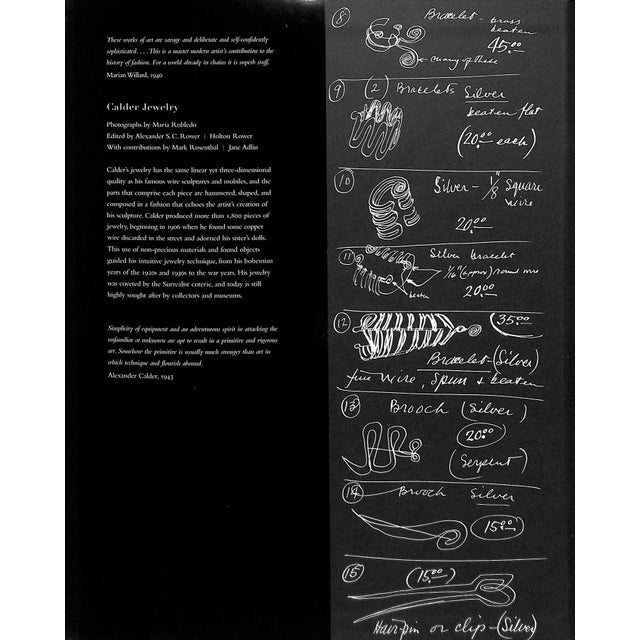 These works of art are savage and deliberate and self-confidently
sophisticated. . . . This is a master modern artist's contribution to the
history of fashion. For a world already in chains it is superb stuff.
Marian Willard, 1940
Calder Jewelry
Photographs by Maria Robledo
Edited by Alexander S. C. Rower | Holton Rower
With contributions by Mark Rosenthal | Jane Adlin
Calder's jewelry has the same linear yet three-dimensional
quality as his famous wire sculptures and mobiles, and the
parts that comprise each piece are hammered, shaped, and
composed in a fashion that echoes the artist's creation of
his sculpture. Calder produced more than 1,800 pieces of
jewelry, beginning in 1906 when he found some copper
wire discarded in the street and adorned his sister's dolls.
This use of non-precious materials and found objects
guided his intuitive jewelry technique, from his bohemian
years of the 1920s and 1930s to the war years. His jewelry
was coveted by the Surrealist coterie, and today is still
highly sought after by collectors and museums.
Simplicity of equipment and an adventurous spirit in attacking the
unfamiliar or unknown are apt to result in a primitive and vigorous
art. Somehow the primitive is usually much stronger than art in
which technique and flourish abound.
Alexander Calder, 1943
8 Bracelet - brass
beaten
45.00
many of these
9 (2) Bracelets Silver
beaten flat
(20.00 each)
10 Silver - 1/8" Square
wire
20.00
11 Silver bracelet
1/16" (approx) round wire
beaten 20.00
12 35.00
Bracelet (Silver)
fine wire, Spun & beaten
13 Brooch (Silver)
20.00
(Serpent)
14 Brooch Silver
15.00
15 (15.00)
Hair-pin or clip - (Silver)